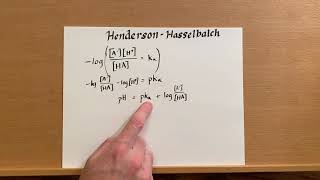 Henderson-Hasselbalch
-log([A⁻][H⁺]/[HA] = Ka)
-log [A⁻]/[HA] - log[H⁺] = pKa
pH = pKa + log [A⁻]/[HA]